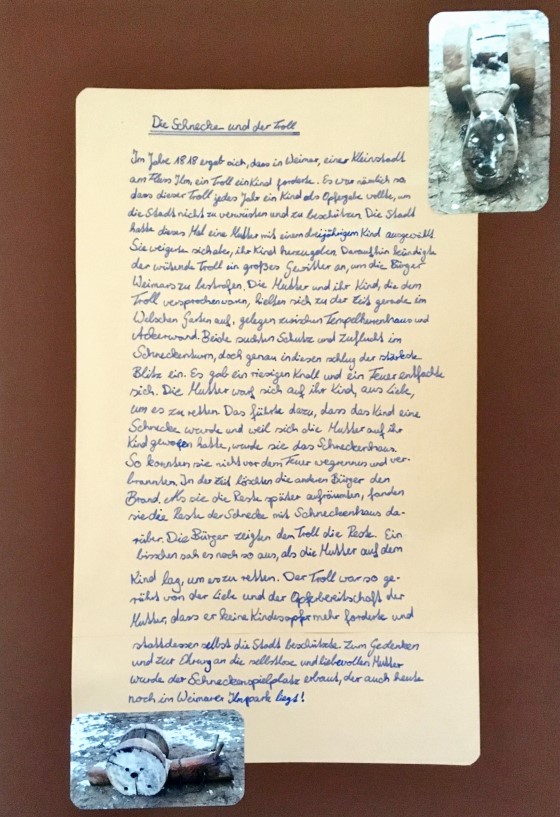 Die Schnecke und der Troll
Im Jahre 1818 ergab sich, dass in Weimar, einer Kleinstadt
am Fluss Ilm, ein Troll ein Kind forderte. Es war nämlich so,
dass dieser Troll jedes Jahr ein Kind als Opfergabe wollte, um
die Stadt nicht zu verwüsten und zu beschützen. Die Stadt
hatte dieses Mal eine Mutter mit einem dreijährigem Kind ausgewählt.
Sie weigerte sich aber, ihr Kind herzugeben. Daraufhin kündigte
der wütende Troll ein großes Gewitter an, um die Bürger
Weimars zu bestrafen. Die Mutter und ihr Kind, die dem
Troll versprochen waren, hielten sich zu der Zeit gerade im
Welschen Garten auf, gelegen zwischen Tempelherrenhaus und
Ackerwand. Beide suchten Schutz und Zuflucht im
Schneckenturm, doch genau in diesen schlug der stärkste
Blitz ein. Es gab ein riesigen Knall und ein Feuer entfachte
sich. Die Mutter warf sich auf ihr Kind, aus Liebe,
um es zu retten. Das führte dazu, dass das Kind eine
Schnecke wurde und weil sich die Mutter auf ihr
Kind geworfen hatte, wurde sie das Schneckenhaus.
So konnten sie nicht vor dem Feuer wegrennen und ver-
brannten. In der Zeit löschten die anderen Bürger den
Brand. Als sie die Reste später aufräumten, fanden
sie die Reste der Schnecke mit Schneckenhaus da-
rüber. Die Bürger zeigten dem Troll die Reste. Ein
bisschen sah es noch so aus, als die Mutter auf dem
Kind lag, um es zu retten. Der Troll war so ge-
rührt von der Liebe und der Opferbereitschaft der
Mutter, dass er keine Kindesopfer mehr forderte und
stattdessen selbst die Stadt beschützte. Zum Gedenken
und zur Ehrung an die selbstlose und liebevollen Mutter
wurde der Schneckenspielplatz erbaut, der auch heute
noch im Weimarer Ilmpark liegt!